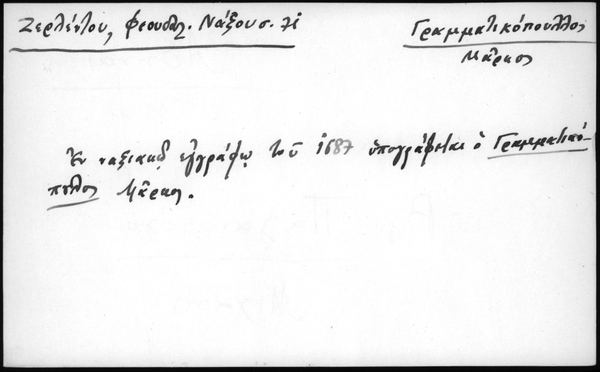 Ζερλέντου, Φεουδαλ. Νάξου σ. 71
Γραμματικόπουλλος
Μᾶρκος
Ἐν ναξιακῷ ἐγγράφῳ τοῦ 1687 ὑπογράφεται ὁ Γραμματικό-
πουλος Μᾶρκος.